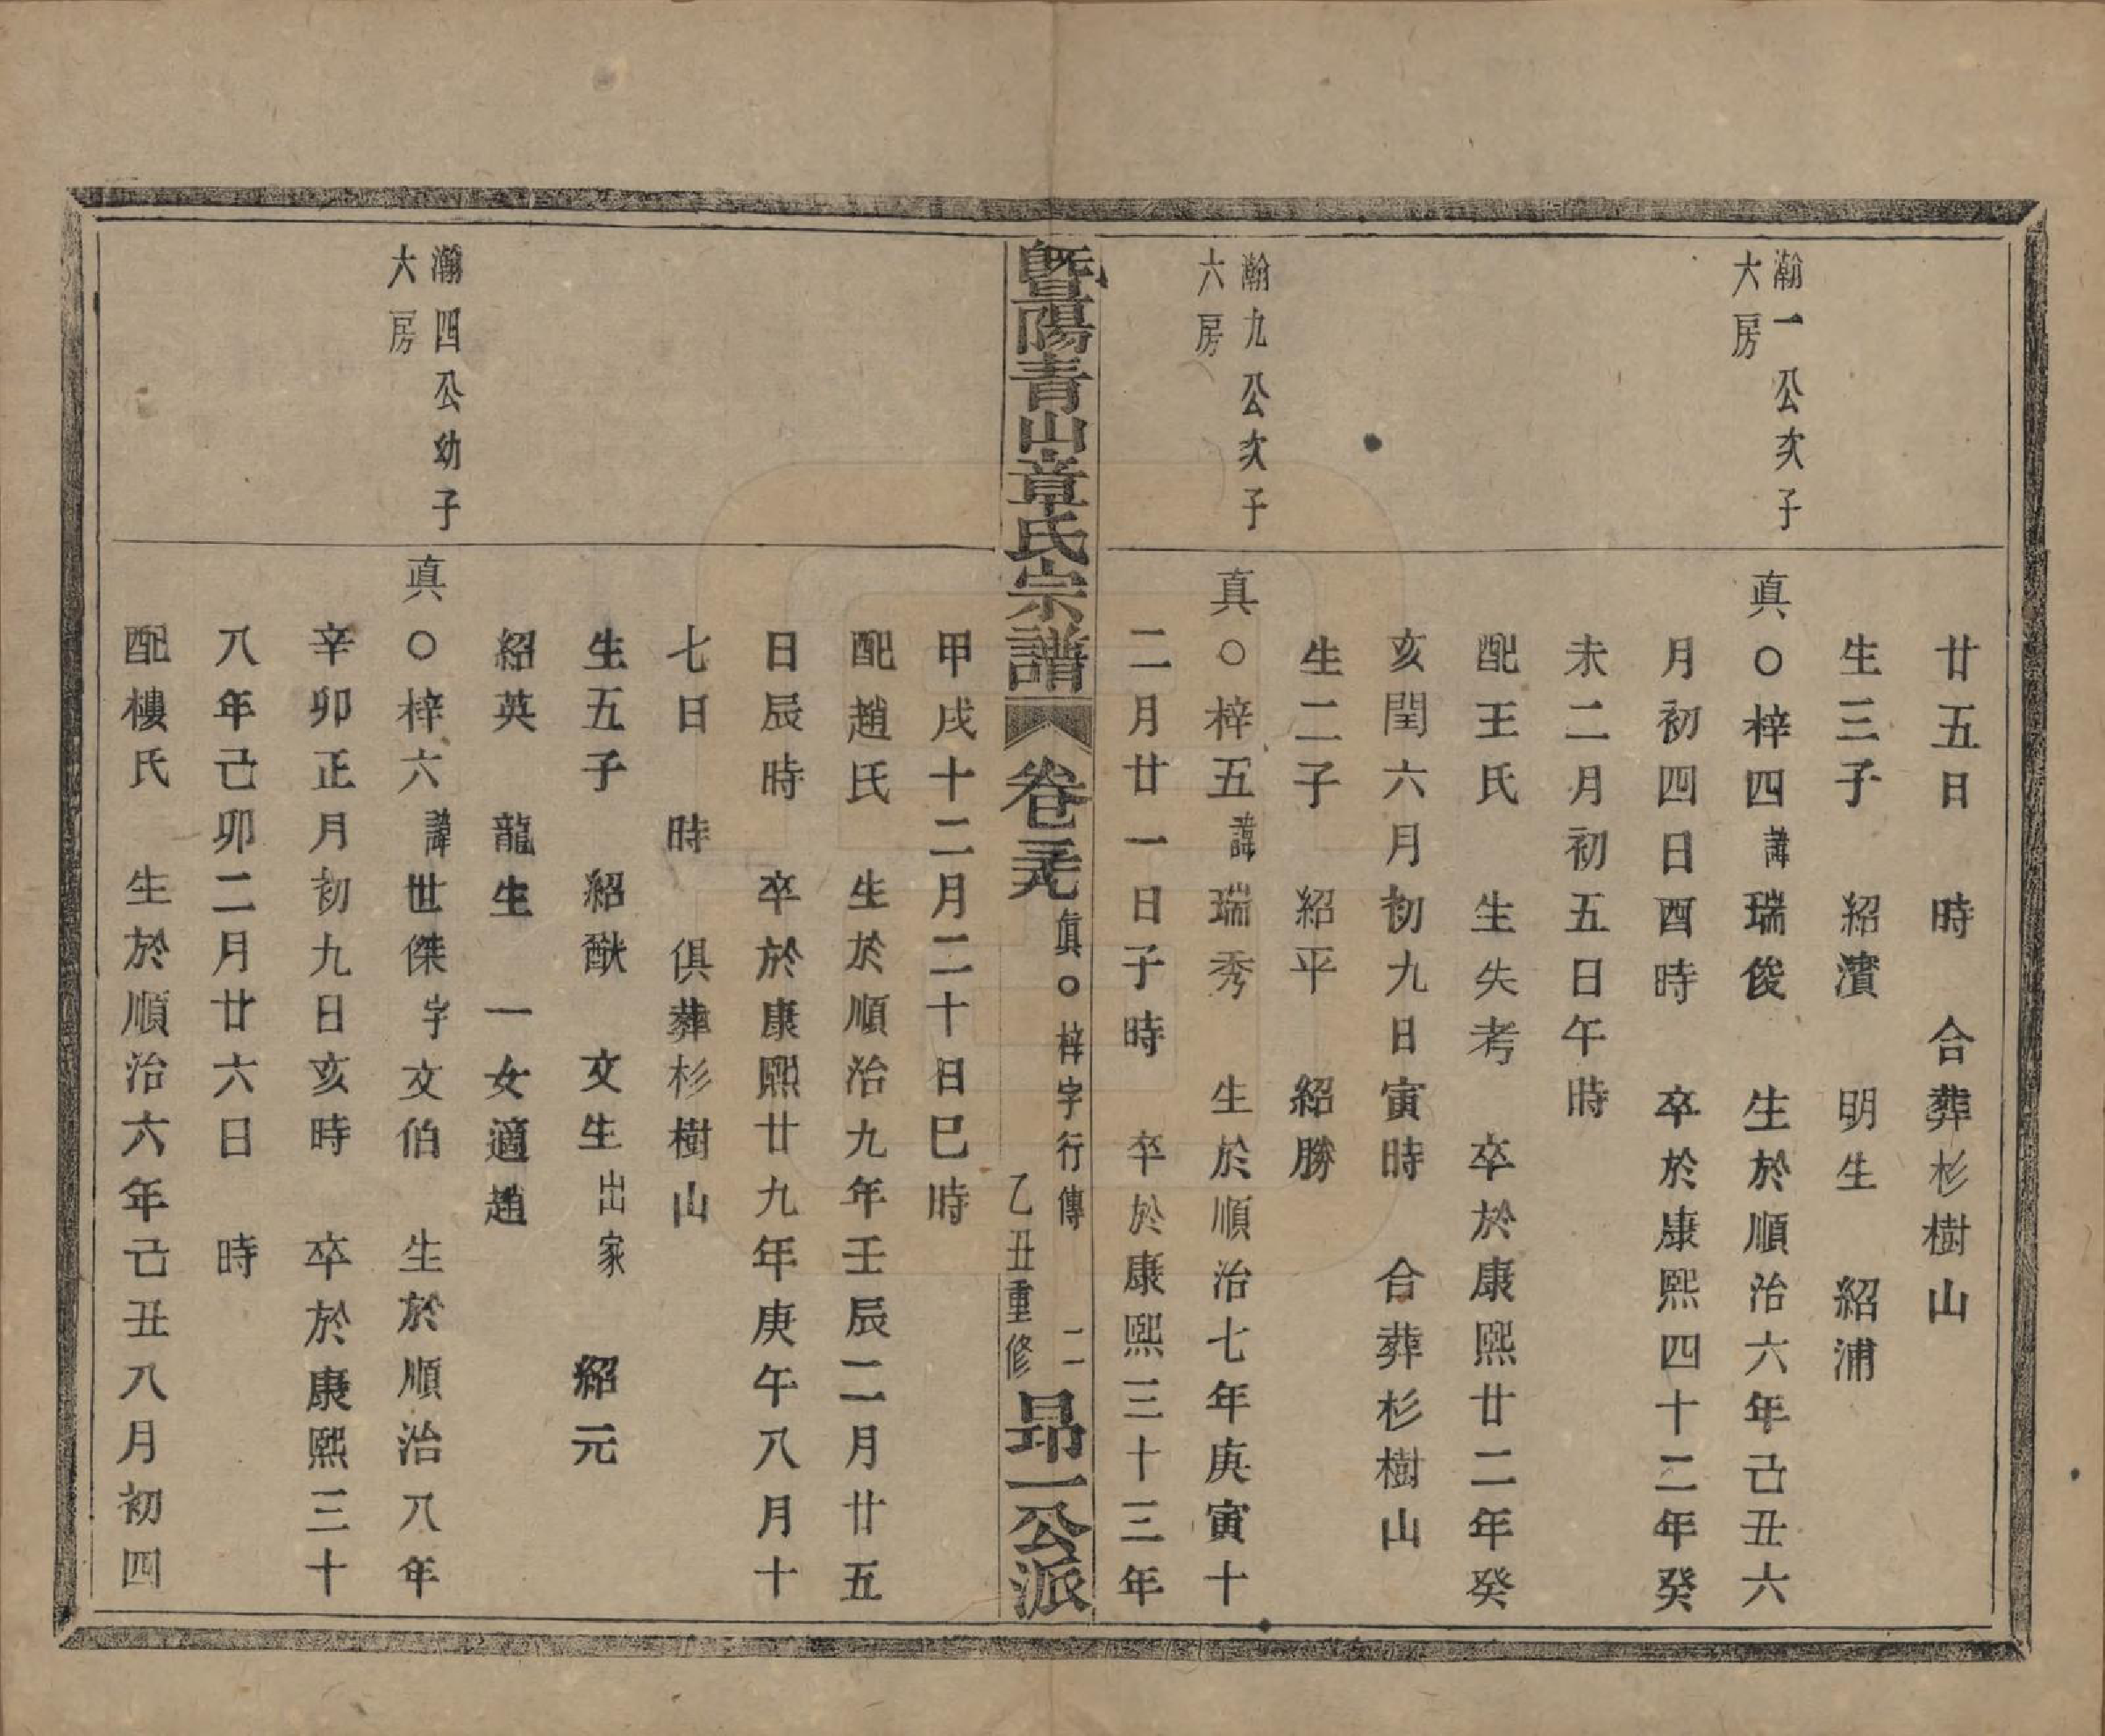 廿五日　時　合葬杉樹山
生三子　紹濱　明生　紹浦
瀚一公次子
大房
真〇梓四諱瑞俊　生於順治六年己丑六
月初四日酉時　卒於康熙四十二年癸
未二月初五日午時
配王氏　生失考　卒於康熙廿二年癸
亥閏六月初九日寅時　合葬杉樹山
生二子　紹平　紹勝
瀚九公次子
六房
真〇梓五諱瑞秀　生於順治七年庚寅十
二月廿一日子時　卒於康熙三十三年
暨陽青山章氏宗譜　卷三九　真〇梓字行傳　二　乙丑重修　昂一公派
甲戌十二月二十日巳時
配趙氏　生於順治九年壬辰二月廿五
日辰時　卒於康熙廿九年庚午八月十
七日　時　俱葬杉樹山
生五子　紹猷　文生出家　紹元
紹英　龍生　一女適趙
瀚四公幼子
大房
真〇梓六諱世傑字文伯　生於順治八年
辛卯正月初九日亥時　卒於康熙三十
八年己卯二月廿六日　時
配樓氏　生於順治六年己丑八月初四